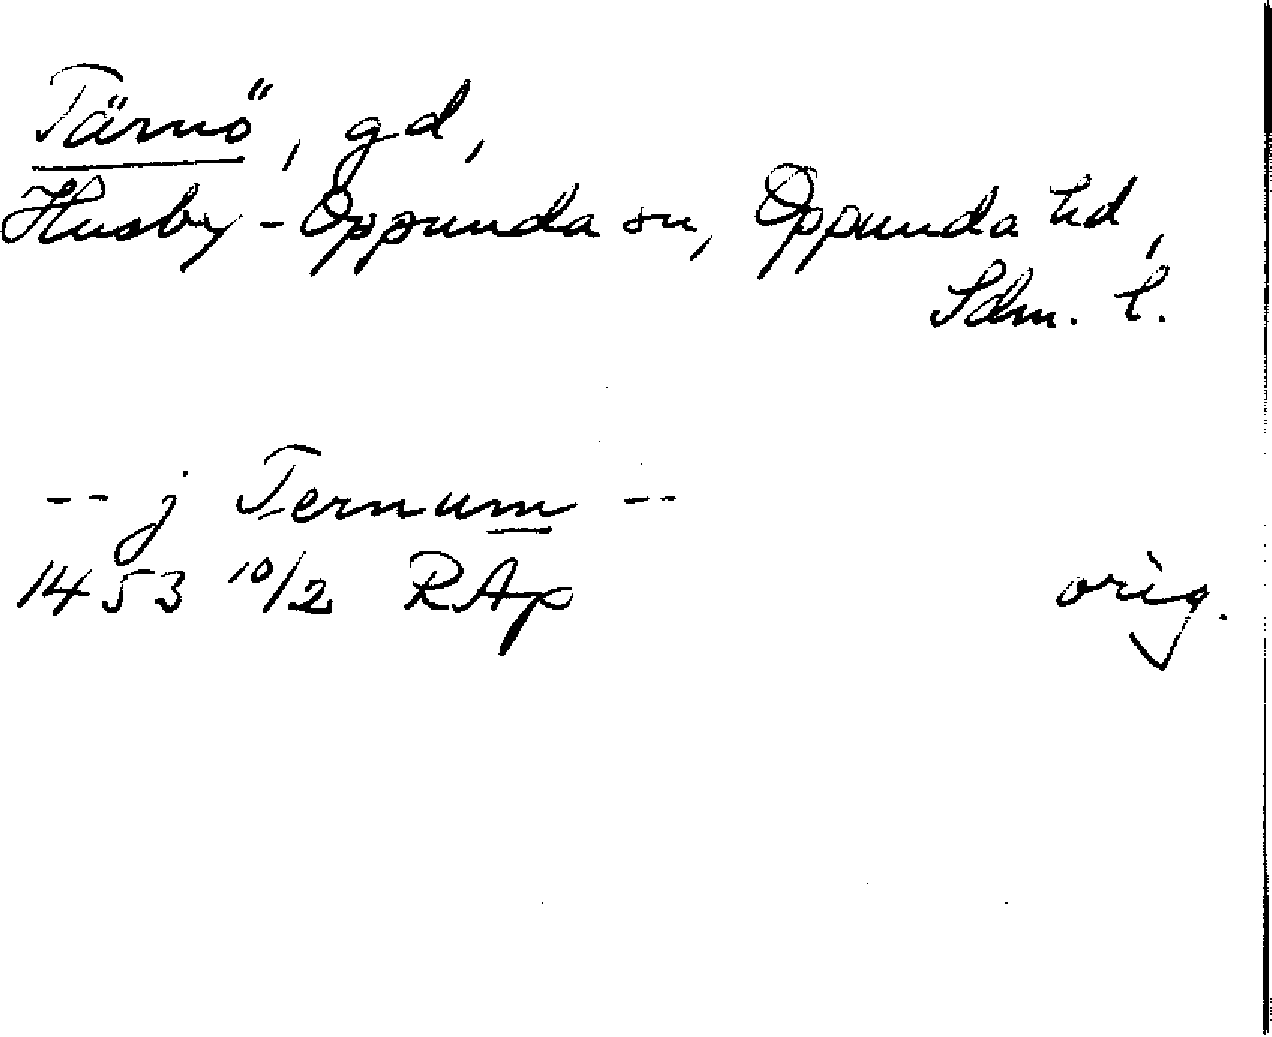 Tärnö, gd,
Husby-Oppunda sn, Oppunda hd,
Sdm. l.
-- j Ternum --
1453 10/2 RAp orig.